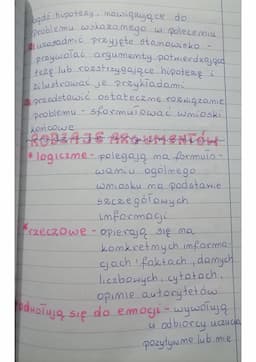 bądź hipotezy, nawiązujące do
problemu wskazanego w poleceniu
uzasadnić przyjęte stanowisko -
przywołać argumenty potwierdzające
tezę lub rozstrzygające hipotezę i
zilustrować je przykładami
przedstawić ostateczne rozwiązanie
problemu - sformułować wnioski
końcowe
RODZAJE ARGUMENTÓW
* logiczne - polegają na formuło-
waniu ogólnego
wniosku na podstawie
szczegółowych
informacji
* rzeczowe - opierają się na
konkretnych informa-
cjach: faktach, danych
liczbowych, cytatach,
opinie autorytetów
odwołują się do emocji - wywołują
u odbiorcy uczucia
pozytywne lub nie